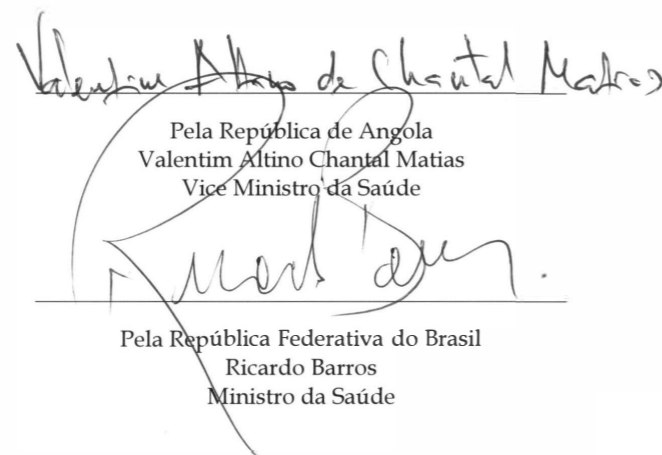 Valentim Altino de Chantal Matias
Pela República de Angola
Valentim Altino Chantal Matias
Vice Ministro da Saúde
Ricardo Barros
Pela República Federativa do Brasil
Ricardo Barros
Ministro da Saúde